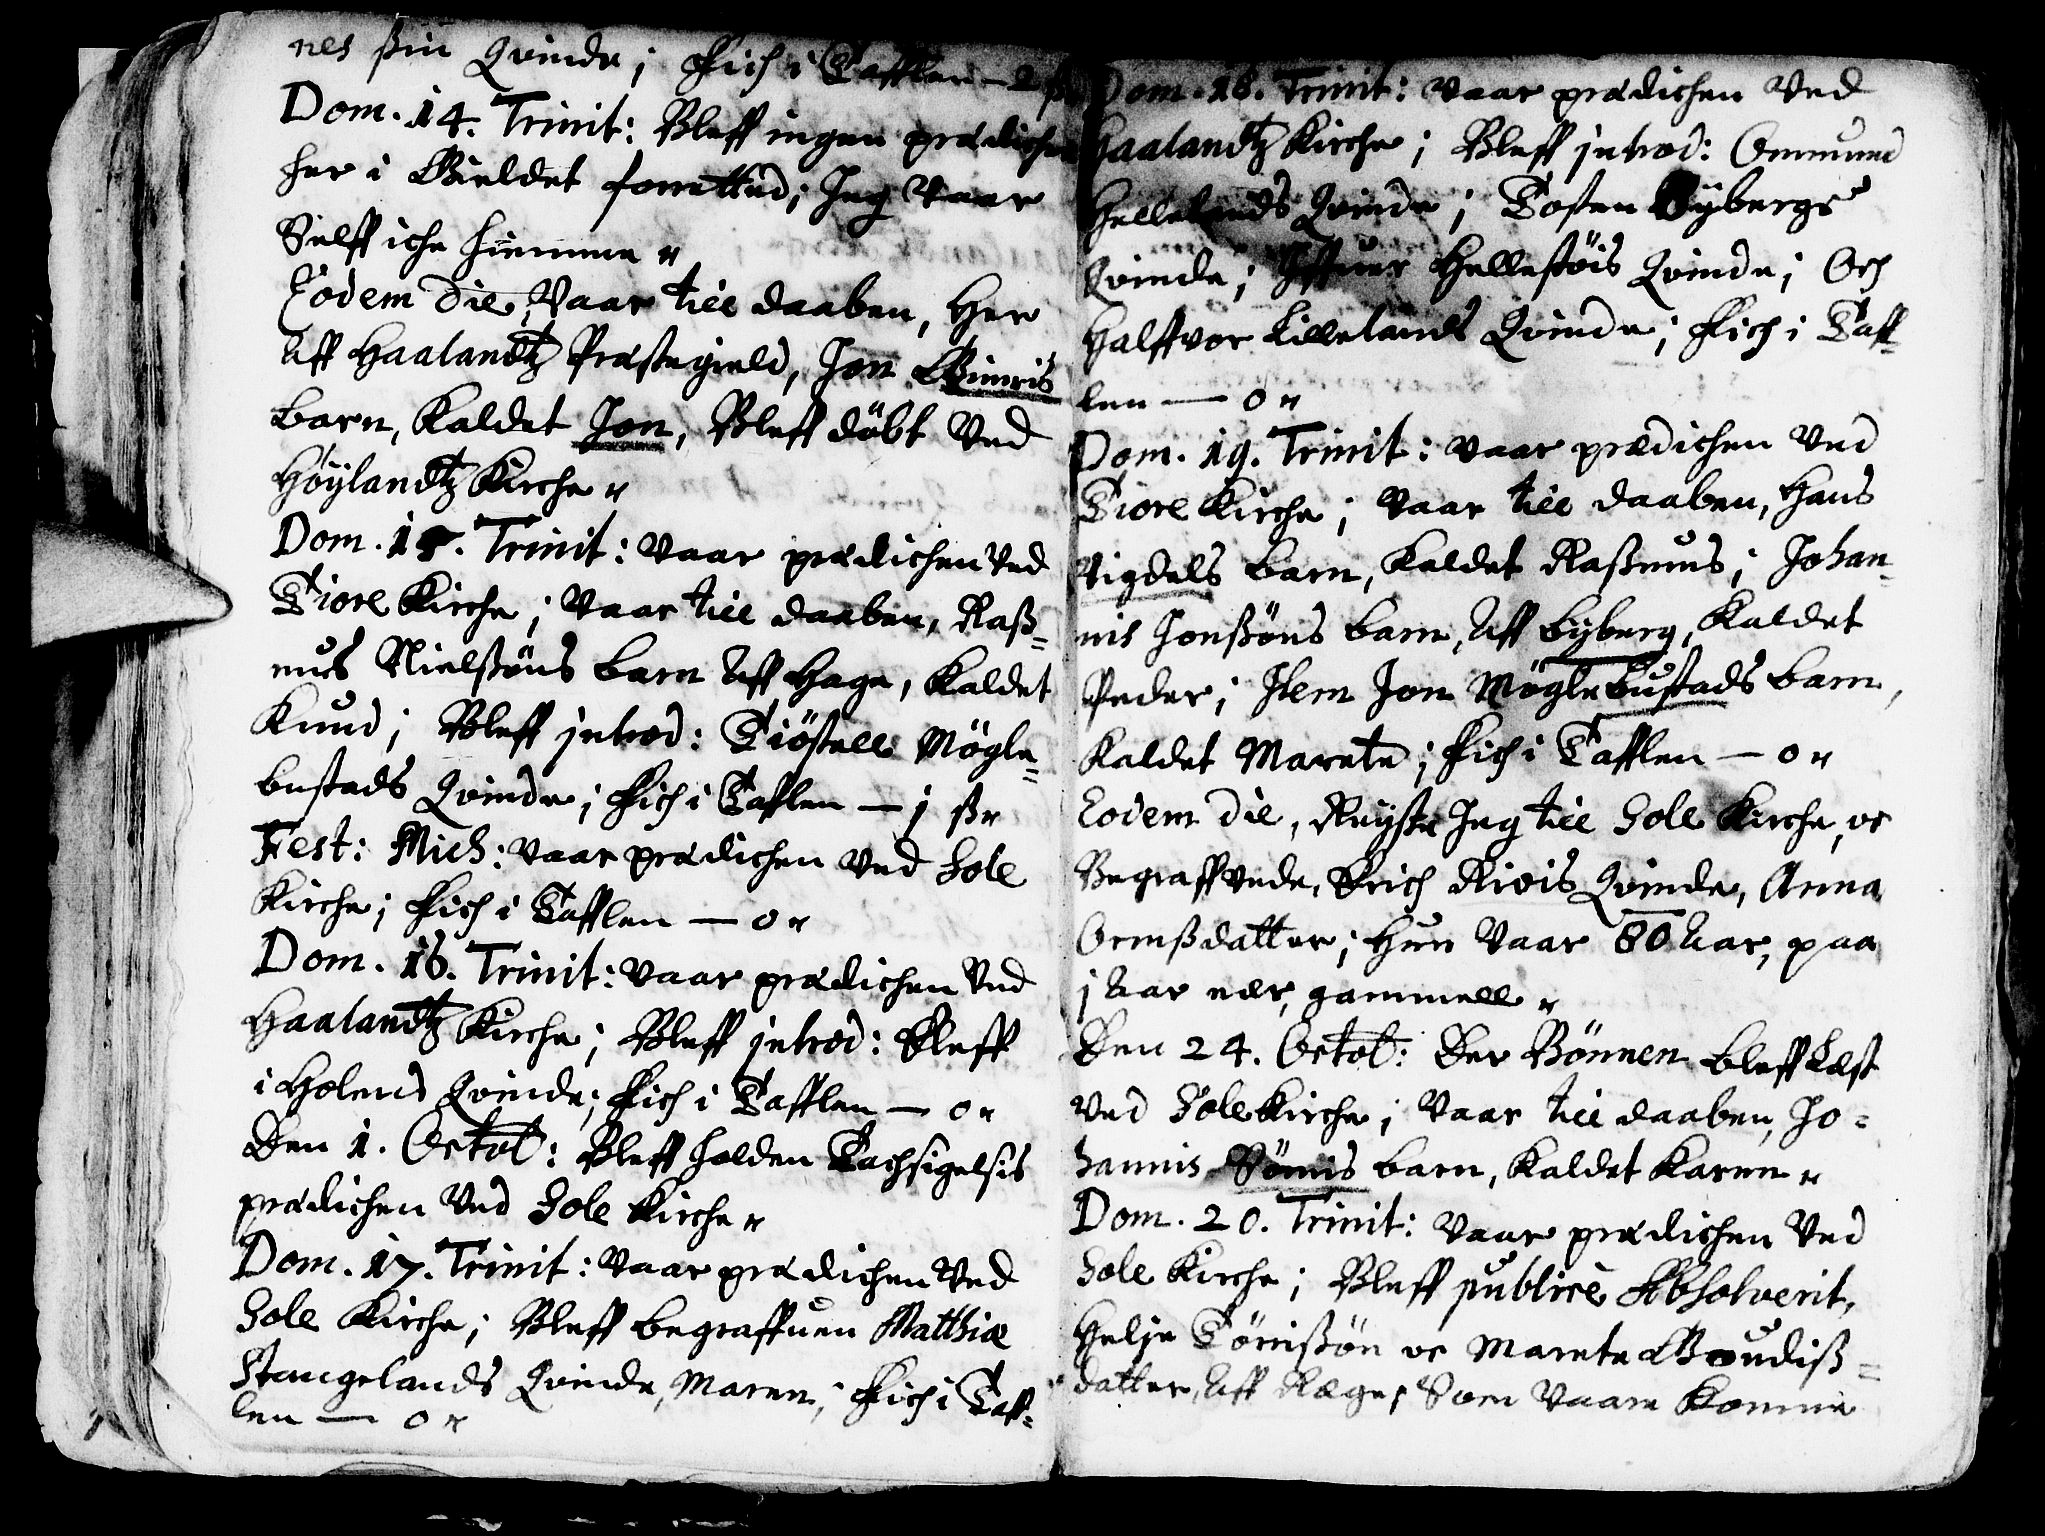 nes ßin Qvinde; Fich i Tafflen — 2 ß
Dom. 14. Trinit: Bleff ingen prædichen
her i Gieldet forretted; Jeg vaar
Selff iche hiemme
Eodem die, Vaar till daaben, Her
Aff Haalandtz Præstegield, Jon Gimris
barn, kaldet Jon, Bleff döbt Ved
Höylandtz Kirche
Dom. 15. Trinit: Vaar prædichen Ved
Tiore Kirche; Vaar till daaben, Raß=
mus Nielßöns barn Aff Hage, kaldet
Knud; Bleff introd: Tiöstell Mögle=
bustads Qvinde; Fich i Tafflen — j ß
Fest: Mich: vaar prædichen Ved Sole
Kirche; Fich i Tafflen — 0
Dom. 16. Trinit: vaar prædichen Ved
Haalandtz Kirche; Bleff introd: Eleff
i Holens Qvinde; Fich i Tafflen — 0
Den 1. Octob: Bleff holden Tachsigelsis
prædichen Ved Sole Kirche
Dom. 17. Trinit: Vaar prædichen Ved
Sole Kirche; Bleff begraffuen Matthiæ
Stangelands Qvinde, Maren; Fich i Taff=
len — 0
Dom. 18. Trinit: vaar prædichen Ved
Haalandtz Kirche; Bleff introd: Ommund
Hellelands Qvinde; Tosten Byberge
Qvinde; Iffuer Hellestöis Qvinde; Och
Halffvor Lillelands Qvinde; Fich i Taff=
len — 0
Dom. 19. Trinit: vaar prædichen Ved
Tiore Kirche; Vaar till daaben, Hans
Vigdels barn, kaldet Raßmus; Johan=
nis Jonßöns barn, Aff Byberg, kaldet
Peder; Item Jon Möglebustads barn,
kaldet Marete; Fich i Tafflen — 0
Eodem die, Reyste Jeg till Sole Kirche, oc
Begraffvede, Erich Røiis Qvinde, Anna
Ormßdatter; Hun Vaar 80 Aar, paa
j Aar nær, gammell
Den 24. Octob: Der Bönnen bleff Læst
Ved Sole Kirche; Vaar till daaben, Jo=
hannis Sömis barn, kaldet Karen
Dom. 20. Trinit: Vaar prædichen Ved
Sole Kirche; Bleff publicè Absolverit,
Helje Tönißön oc Marete Gudiß=
datter, Aff Ræge, Som Vaare komne